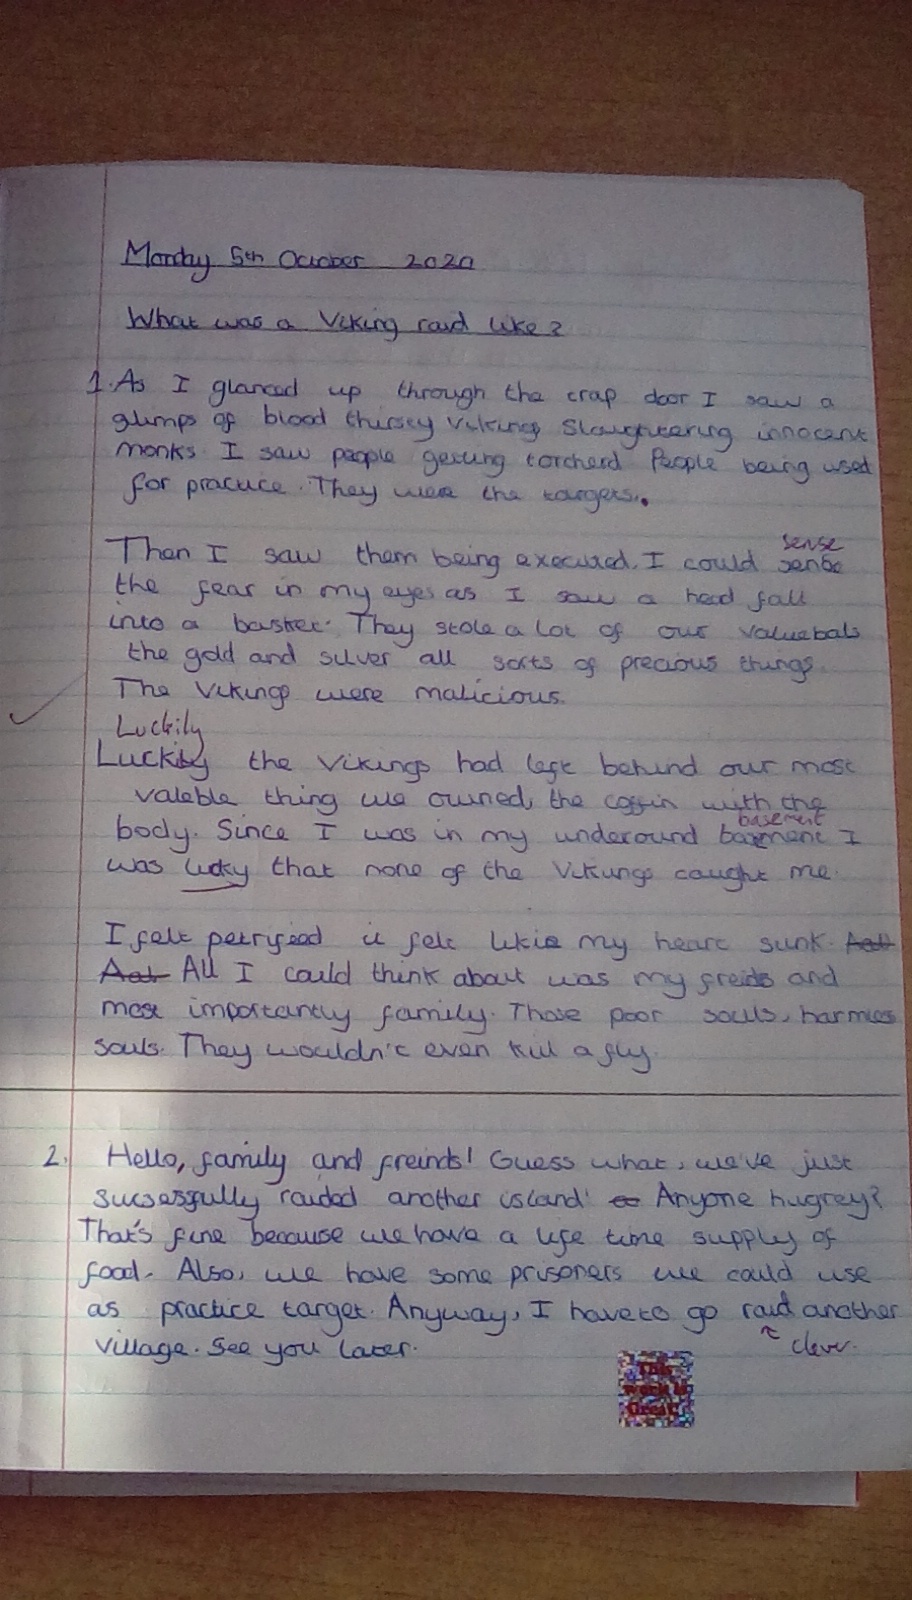 Monday 5th October 2020
What was a Viking raid like?
1. As I glanced up through the trap door I saw a
glimps of blood thirsty Vikings slaughtering innocent
monks. I saw people getting torcherd. People being used
for practice. They were the targets.
Then I saw them being executed. I could sense
sense
the fear in my eyes as I saw a head fall
into a basket. They stole a lot of our valuebals
the gold and silver all sorts of precious things.
The Vikings were malicious.
Luckily
Luckily the Vikings had left behind our most
valeble thing we owned, the coffin with the
basement
body. Since I was in my underound basment I
was lucky that none of the Vikings caught me.
I felt petrifeed it felt likie my heart sunk.
All I could think about was my freids and
most importantly family. Those poor souls, harmles
souls. They wouldn't even kill a fly.
2. Hello, family and freinds! Guess what, we've just
sucsessfully raided another island! Anyone hugrey?
That's fine because we have a life time supply of
food. Also, we have some prisoners we could use
as practice target. Anyway, I have to go raid another
village. See you later.
clever.
This
work is
Great!